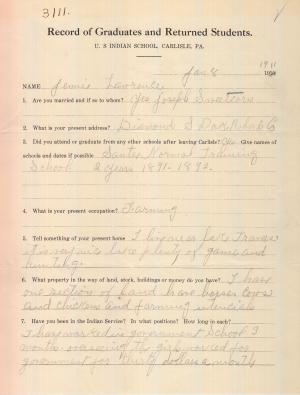 3111.
Record of Graduates and Returned Students.
U. S INDIAN SCHOOL, CARLISLE, PA.
Jan 8 1911
NAME Jennie Lawrence
1. Are you married and if so to whom? Yes Joseph
2. What is your present address? S Dak
3. Did you attend or graduate from any other schools after leaving Carlisle? Yes Give names of
schools and dates if possible Santee Normal Training
School 2 years 1891-1892.
4. What is your present occupation? Farming
5. Tell something of your present home I live near lake
it is very nice lake plenty of game and
6. What property in the way of land, stock, buildings or money do you have? I have
one section of land have horses cows
and chickens and farming
7. Have you been in the Indian Service? In what positions? How long in each?
I have worked in government School 3
months the girls worked for
government for thirty dollars a month